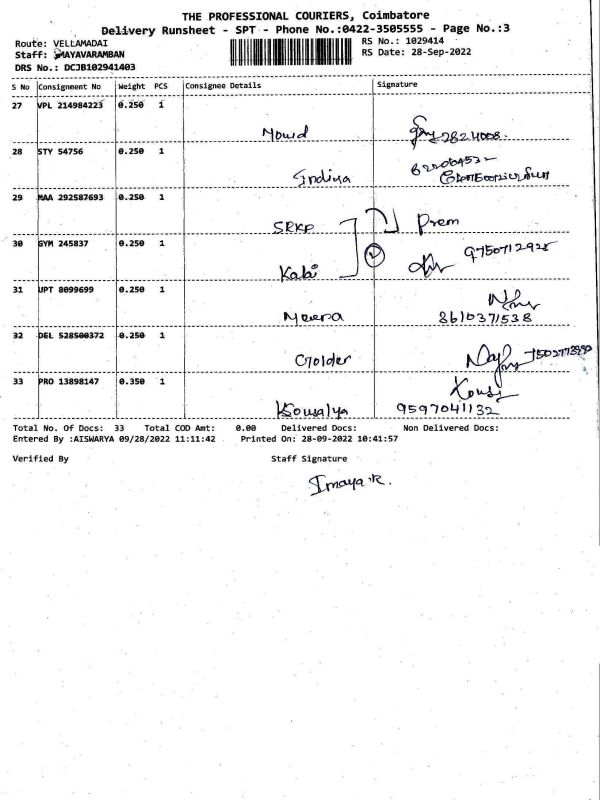 THE PROFESSIONAL COURIERS, Coimbatore
Delivery Runsheet - SPT - Phone No.:0422-3505555 - Page No.:3
Route: VELLAMADAI
RS No.: 1029414
Staff: MAYAVARAMBAN
RS Date: 28-Sep-2022
DRS No.: DCJB102941403
S No Consignment No Weight PCS Consignee Details Signature
27 VPL 214984223 0.250 1
Mowd
28 STY 54756 0.250 1
Indiya
29 MAA 292587693 0.250 1
SRKP Prem
30 GYM 245837 0.250 1
9750712928
Kabi
31 UPT 8099699 0.250 1
Meera 8610371538
32 DEL 528500372 0.250 1
Golder
33 PRO 13898147 0.350 1
Kousi
Kowsalya 9597041132
Total No. Of Docs: 33 Total COD Amt: 0.00 Delivered Docs: Non Delivered Docs:
Entered By :AISWARYA 09/28/2022 11:11:42 Printed On: 28-09-2022 10:41:57
Verified By Staff Signature
Imaya.R.